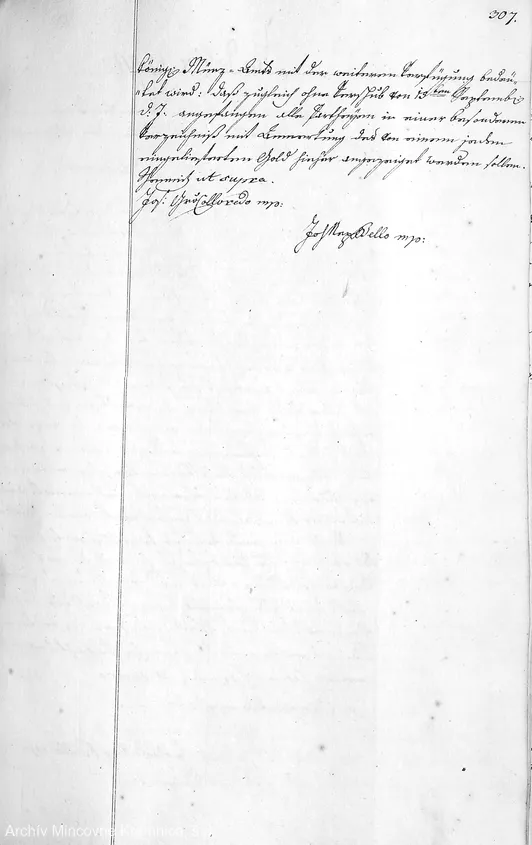 307.
Königl. Münz-Amts mit der weiteren Verfügung bedeu-
tet wird: daß zugleich ohne Verschub von 13ten Septembr
d. J. angefangen alle Partheyen in einer besonderen
Verzeichniß mit Anmerkung des von einem jeden
eingelieferten Gold hieher angezeiget werden sollen.
Schemnitz ut supra.
Jos: Gr. Colloredo mp:
Jos mp:
Archív Mincovne Kremnica